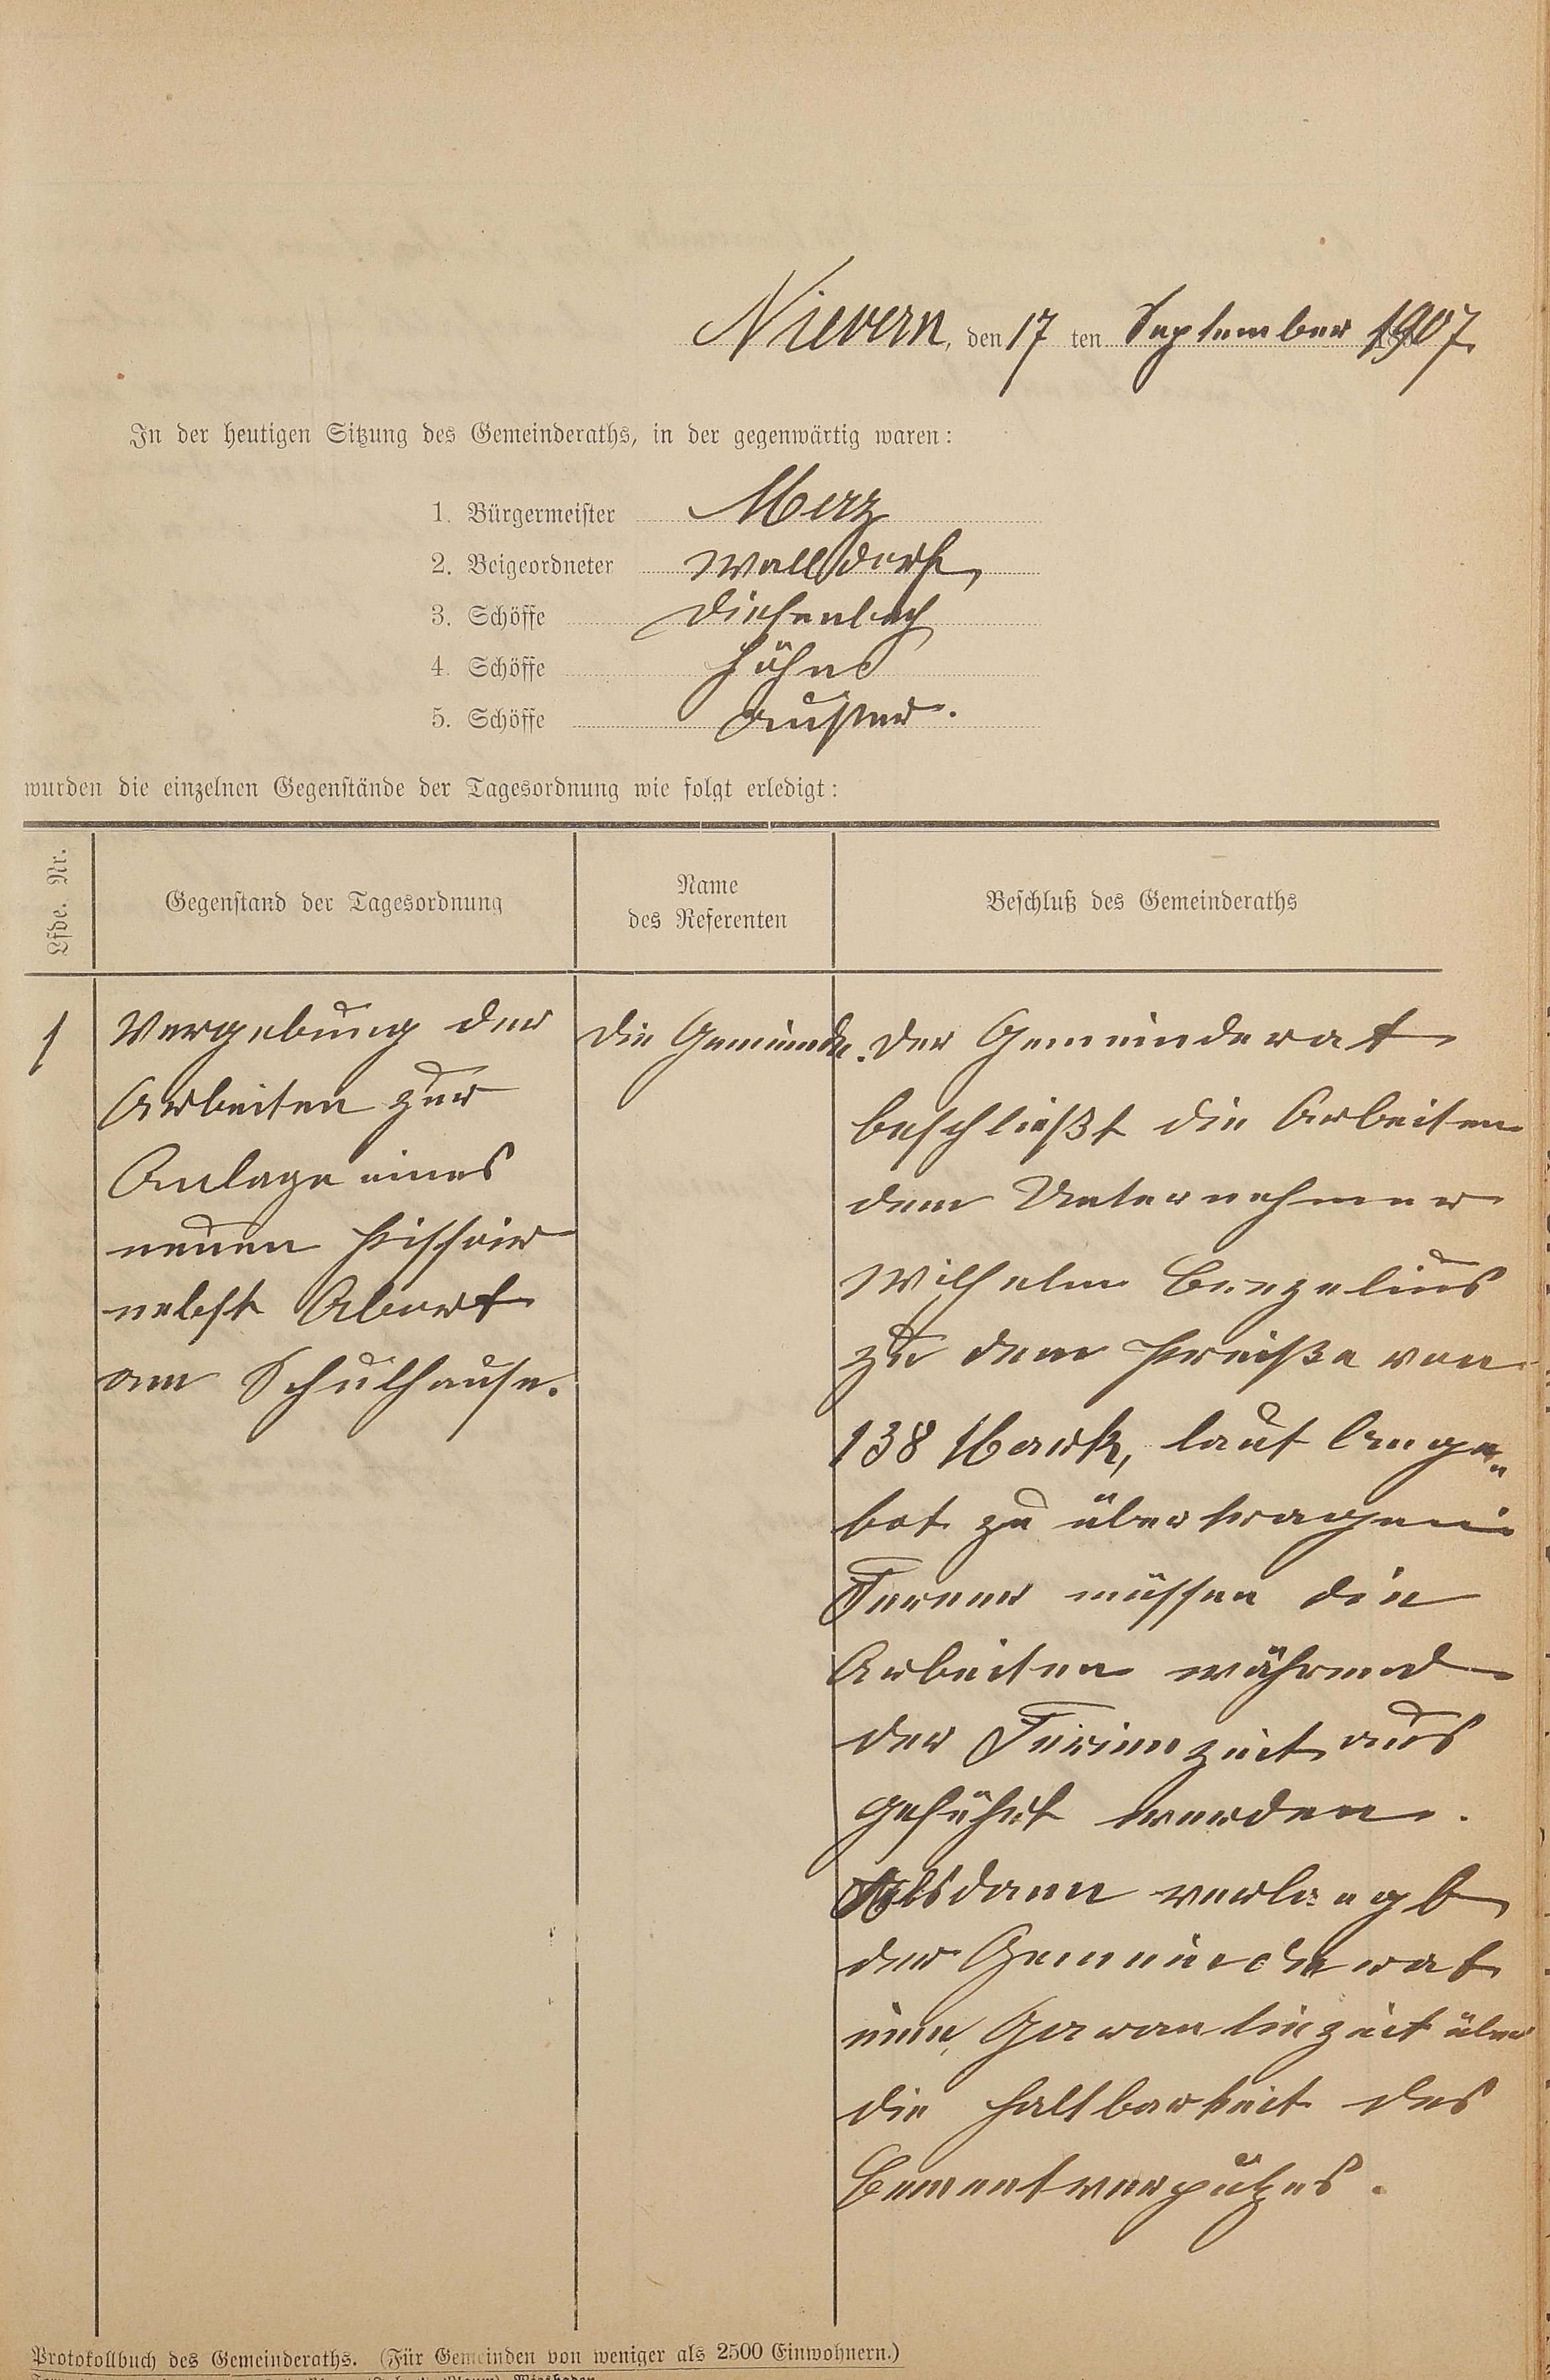 Nievern, den 17 ten September 1907.
In der heutigen Sitzung des Gemeinderaths, in der gegenwärtig waren:
1. Bürgermeister Merz
2. Beigeordneter Walldorf,
3. Schöffe Diefenbach
4. Schöffe Höhn
5. Schöffe Auster.
wurden die einzelnen Gegenstände der Tagesordnung wie folgt erledigt:
Lfde. Nr.
Gegenstand der Tagesordnung
Name
des Referenten
Beschluß des Gemeinderaths
1
Vergebung der
Arbeiten zur
Anlage eines
neuen Pissoir
nebst Abort
am Schulhause.
Die Gemeinde.
Der Gemeinderat
beschließt die Arbeiten
dem Unternehmer
Wilhelm
zu dem Preiße von
138 Mark, laut Ange„
bot zu übertragen
Ferner müssen die
Arbeiten während
der Ferienzeit aus
geführt werden.
Alsdann verlangt
der Gemeinderat
eine Garantiezeit über
die Haltbarkeit des
Cementverputzes.
Protokollbuch des Gemeinderaths. (Für Gemeinden von weniger als 2500 Einwohnern.)